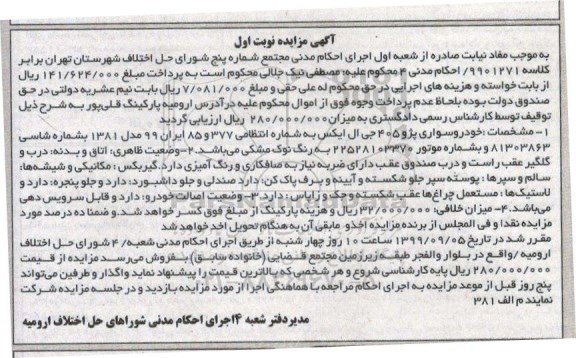 آگهی مزایده نوبت اول
به موجب مفاد نیابت صادره از شعبه اول اجرای احکام مدنی مجتمع شماره پنج شورای حل اختلاف شهرستان تهران برابر
کلاسه ۹۹۰۱۲۷۱/ احکام مدنی ۴ محکوم علیه: مصطفی نیک جلالی محکوم است به پرداخت مبلغ ۱۴۱/۶۲۴/۰۰۰ ریال
از بابت خواسته و هزینه های اجرایی در حق محکوم له علی حقی و مبلغ ۷/۰۸۱/۰۰۰ ریال بابت نیم عشریه دولتی در حق
صندوق دولت بوده بلحاظ عدم پرداخت وجوه فوق از اموال محکوم علیه در آدرس ارومیه پارکینگ قلی‌پور به شرح ذیل
توقیف توسط کارشناس رسمی دادگستری به میزان ۲۸۰/۰۰۰/۰۰۰ ریال ارزیابی گردید
۱- مشخصات: خودروسواری پژو ۴۰۵ جی ال ایکس به شماره انتظامی ۳۷۷ و ۸۵ ایران ۹۹ مدل ۱۳۸۱ بشماره شاسی
۸۱۳۰۳۸۶۳ و بشماره موتور ۲۲۵۲۸۱۰۳۳۷۰ به رنگ نوک مشکی می‌باشد. ۲- وضعیت ظاهری: اتاق و بدنه: درب و
گلگیر عقب راست و درب صندوق عقب دارای ضربه نیاز به صافکاری و رنگ آمیزی دارد. گیربکس: مکانیکی و شیشه‌ها:
سالم و سپرها: پوسته سپر جلو شکسته و آیینه و برف پاک کن: دارد صندلی و جلو داشبورد: دارد و جلو پنجره: دارد و
لاستیک‌ها: مستعمل چراغ‌ها عقب شکسته و قالپاق و زاپاس: دارد ۳- وضعیت اصالت خودرو: دارد و قابل سرویس دهی
می‌باشد. ۴- میزان خلافی: ۳۲/۰۰۰/۰۰۰ ریال و هزینه پارکینگ از مبلغ فوق کسر خواهد شد. و ضمنا ده درصد مورد
مزایده نقدا و فی المجلس از برنده مزایده اخذ و مابقی آن به هنگام تحویل اخذ خواهد شد
مقرر شد در تاریخ ۱۳۹۹/۰۹/۰۵ ساعت ۱۰ روز چهارشنبه از طریق اجرای احکام مدنی شعبه/ ۴ شورای حل اختلاف
ارومیه/ واقع در بلوار والفجر طبقه زیرزمین مجتمع قضایی (خانواده سابق) بفروش می‌رسد مزایده از قیمت
۲۸۰/۰۰۰/۰۰۰ ریال پایه کارشناسی شروع و هر شخصی که بالاترین قیمت را پیشنهاد نماید واگذار و طرفین می‌تواند
پنج روز قبل از موعد مزایده به اجرای احکام مراجعه با هماهنگی اجرا از مورد مزایده بازدید و در جلسه مزایده شرکت
نمایند م الف ۳۸۱
مدیر دفتر شعبه ۴ اجرای احکام مدنی شوراهای حل اختلاف ارومیه